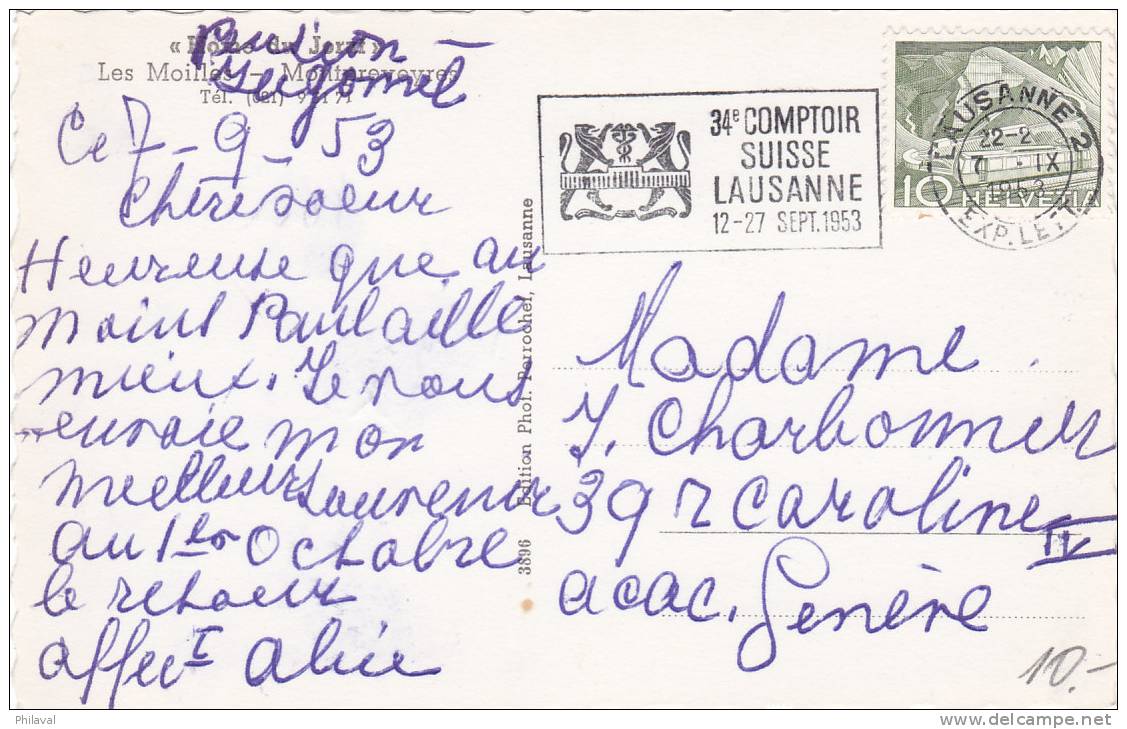 « Home du Jorat »
Pension
Les Moilles – Montpreveyres
Tél. (021) 9 11 71
Ce 7_9_53
Chère soeur
Heureuse que au
moins Paul aille
mieux. Je vous
envoie mon
meilleur souvenir
au 1er Octobre
le retour
affec Alice
3896 Edition Phot. Perrochet, Lausanne
34e COMPTOIR
SUISSE
LAUSANNE
12-27 SEPT. 1953
LAUSANNE 2
22-2
7 - IX
1953
EXP. LETT
10 HELVETIA
Madame
J. Charbonnier
39 r caroline
IV
acac. Genève
10.-
Philaval
delcampe.net